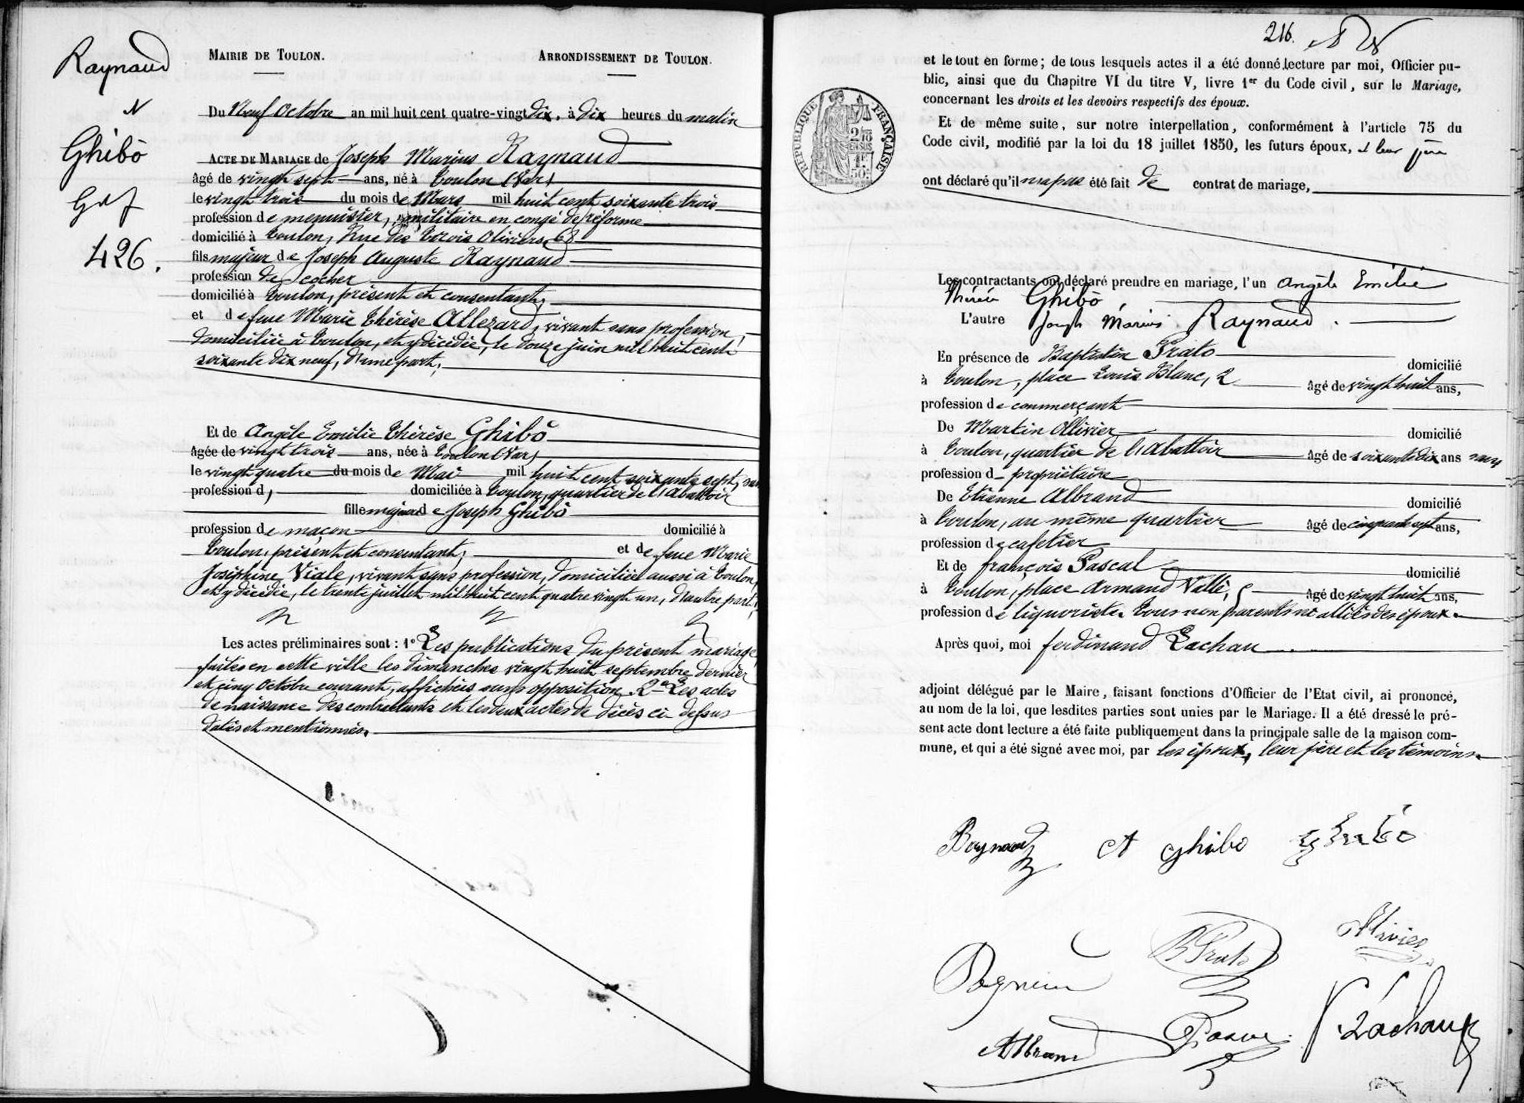 Raynaud
N
Ghibò
426.
MAIRIE DE TOULON. ARRONDISSEMENT DE TOULON.
Du Neuf Octobre an mil huit cent quatre-vingt dix, à dix heures du matin
ACTE DE MARIAGE de Joseph Marius Raynaud
âgé de vingt sept ans, né à Toulon (Var)
le vingt trois du mois de Mars mil huit cent soixante trois
profession de menuisier, militaire en congé de réforme
domicilié à Toulon, Rue des Trois Oliviers, 68
fils majeur de Joseph Auguste Raynaud
profession de cocher
domicilié à Toulon, présent et consentant,
et de feue Marie Thérèse Allezard, vivant sans profession,
domiciliée à Toulon, et y décédée, le douze juin mil huit cent
soixante dix neuf, d'une part,
Et de Angèle Emilie Thérèse Ghibò
âgée de vingt trois ans, née à Toulon (Var)
le vingt quatre du mois de Mai mil huit cent soixante sept, sans
profession d, domiciliée à Toulon, quartier de l'Abattoir
fille majeure de Joseph Ghibò
profession de maçon domicilié à
Toulon, présent et consentant, et de feue Marie
Joséphine Viale, vivant sans profession, domiciliée aussi à Toulon,
et y décédée, le trente juillet mil huit cent quatre vingt un, d'autre part,
Les actes préliminaires sont : 1° Les publications du présent mariage
faites en cette ville les dimanches vingt huit septembre dernier
et cinq Octobre courant, affichées sans opposition. 2° Les actes
de naissance des contractants et les deux actes de décès ci dessus
datés et mentionnés.
216.
et le tout en forme ; de tous lesquels actes il a été donné lecture par moi, Officier pu-
blic, ainsi que du Chapitre VI du titre V, livre 1er du Code civil, sur le Mariage,
concernant les droits et les devoirs respectifs des époux.
RÉPUBLIQUE FRANÇAISE
Et de même suite, sur notre interpellation, conformément à l'article 75 du
Code civil, modifié par la loi du 18 juillet 1850, les futurs époux, et leur père
ont déclaré qu'il n'a pas été fait de contrat de mariage,
Les contractants ont déclaré prendre en mariage, l'un Angèle Emilie
Thérèse Ghibò
L'autre Joseph Marius Raynaud.
En présence de Baptistin Prato domicilié
à Toulon, place Louis Blanc, 2 âgé de vingt huit ans,
profession de commerçant
De Martin Ollivier domicilié
à Toulon, quartier de l'Abattoir âgé de soixante dix ans sans
profession d propriétaire
De Etienne Albrand domicilié
à Toulon, au même quartier âgé de cinquante sept ans,
profession de cafetier
Et de françois Pascal domicilié
à Toulon, place Armand Vallé, 5 âgé de vingt huit ans,
profession de liquoriste. Tous non parents ni alliés des époux.
Après quoi, moi ferdinand Lachau
adjoint délégué par le Maire, faisant fonctions d'Officier de l'Etat civil, ai prononcé,
au nom de la loi, que lesdites parties sont unies par le Mariage. Il a été dressé le pré-
sent acte dont lecture a été faite publiquement dans la principale salle de la maison com-
mune, et qui a été signé avec moi, par les époux, leur père et les témoins.
Raynaud A Ghibo Ghibò
B Prato Ollivier
Albrand F. Lachau